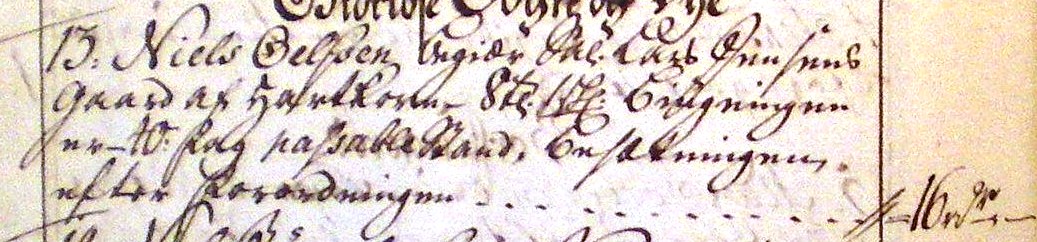 13. Niels Oelssen begiær Sal: Lars Jensens
Gaard af Hartkorn 8td. Bÿgningen
er 40. Fag passable Stand, Besætningen
efter Forordningen - - - - - - - - - 16 rdr